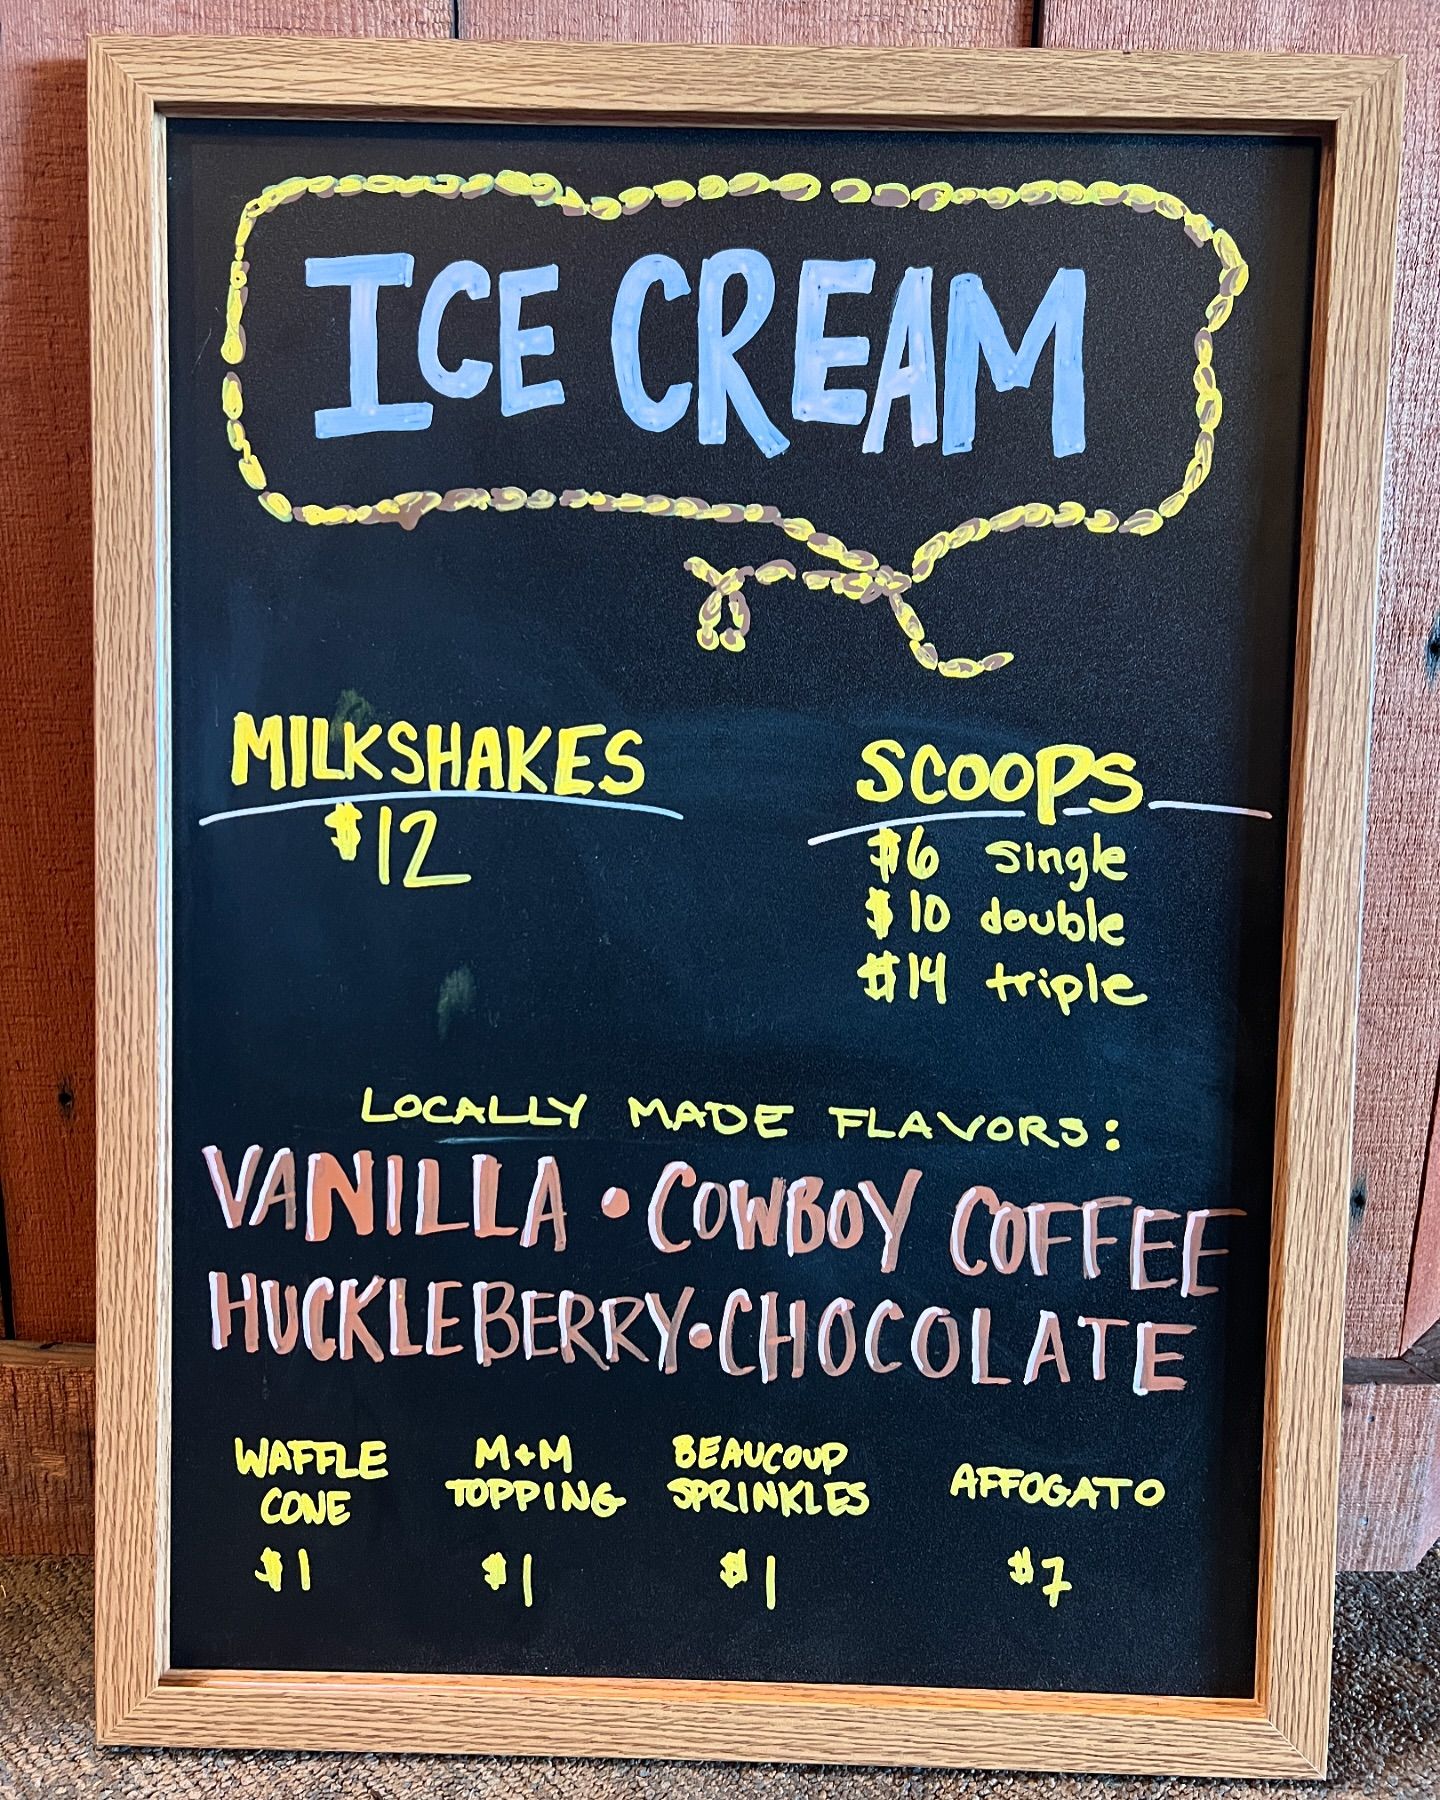 ICE CREAM
MILKSHAKES
$12
SCOOPS
$6 single
$10 double
$14 triple
LOCALLY MADE FLAVORS:
VANILLA • COWBOY COFFEE
HUCKLEBERRY • CHOCOLATE
WAFFLE
CONE
$1
M+M
TOPPING
$1
BEAUCOUP
SPRINKLES
$1
AFFOGATO
$7